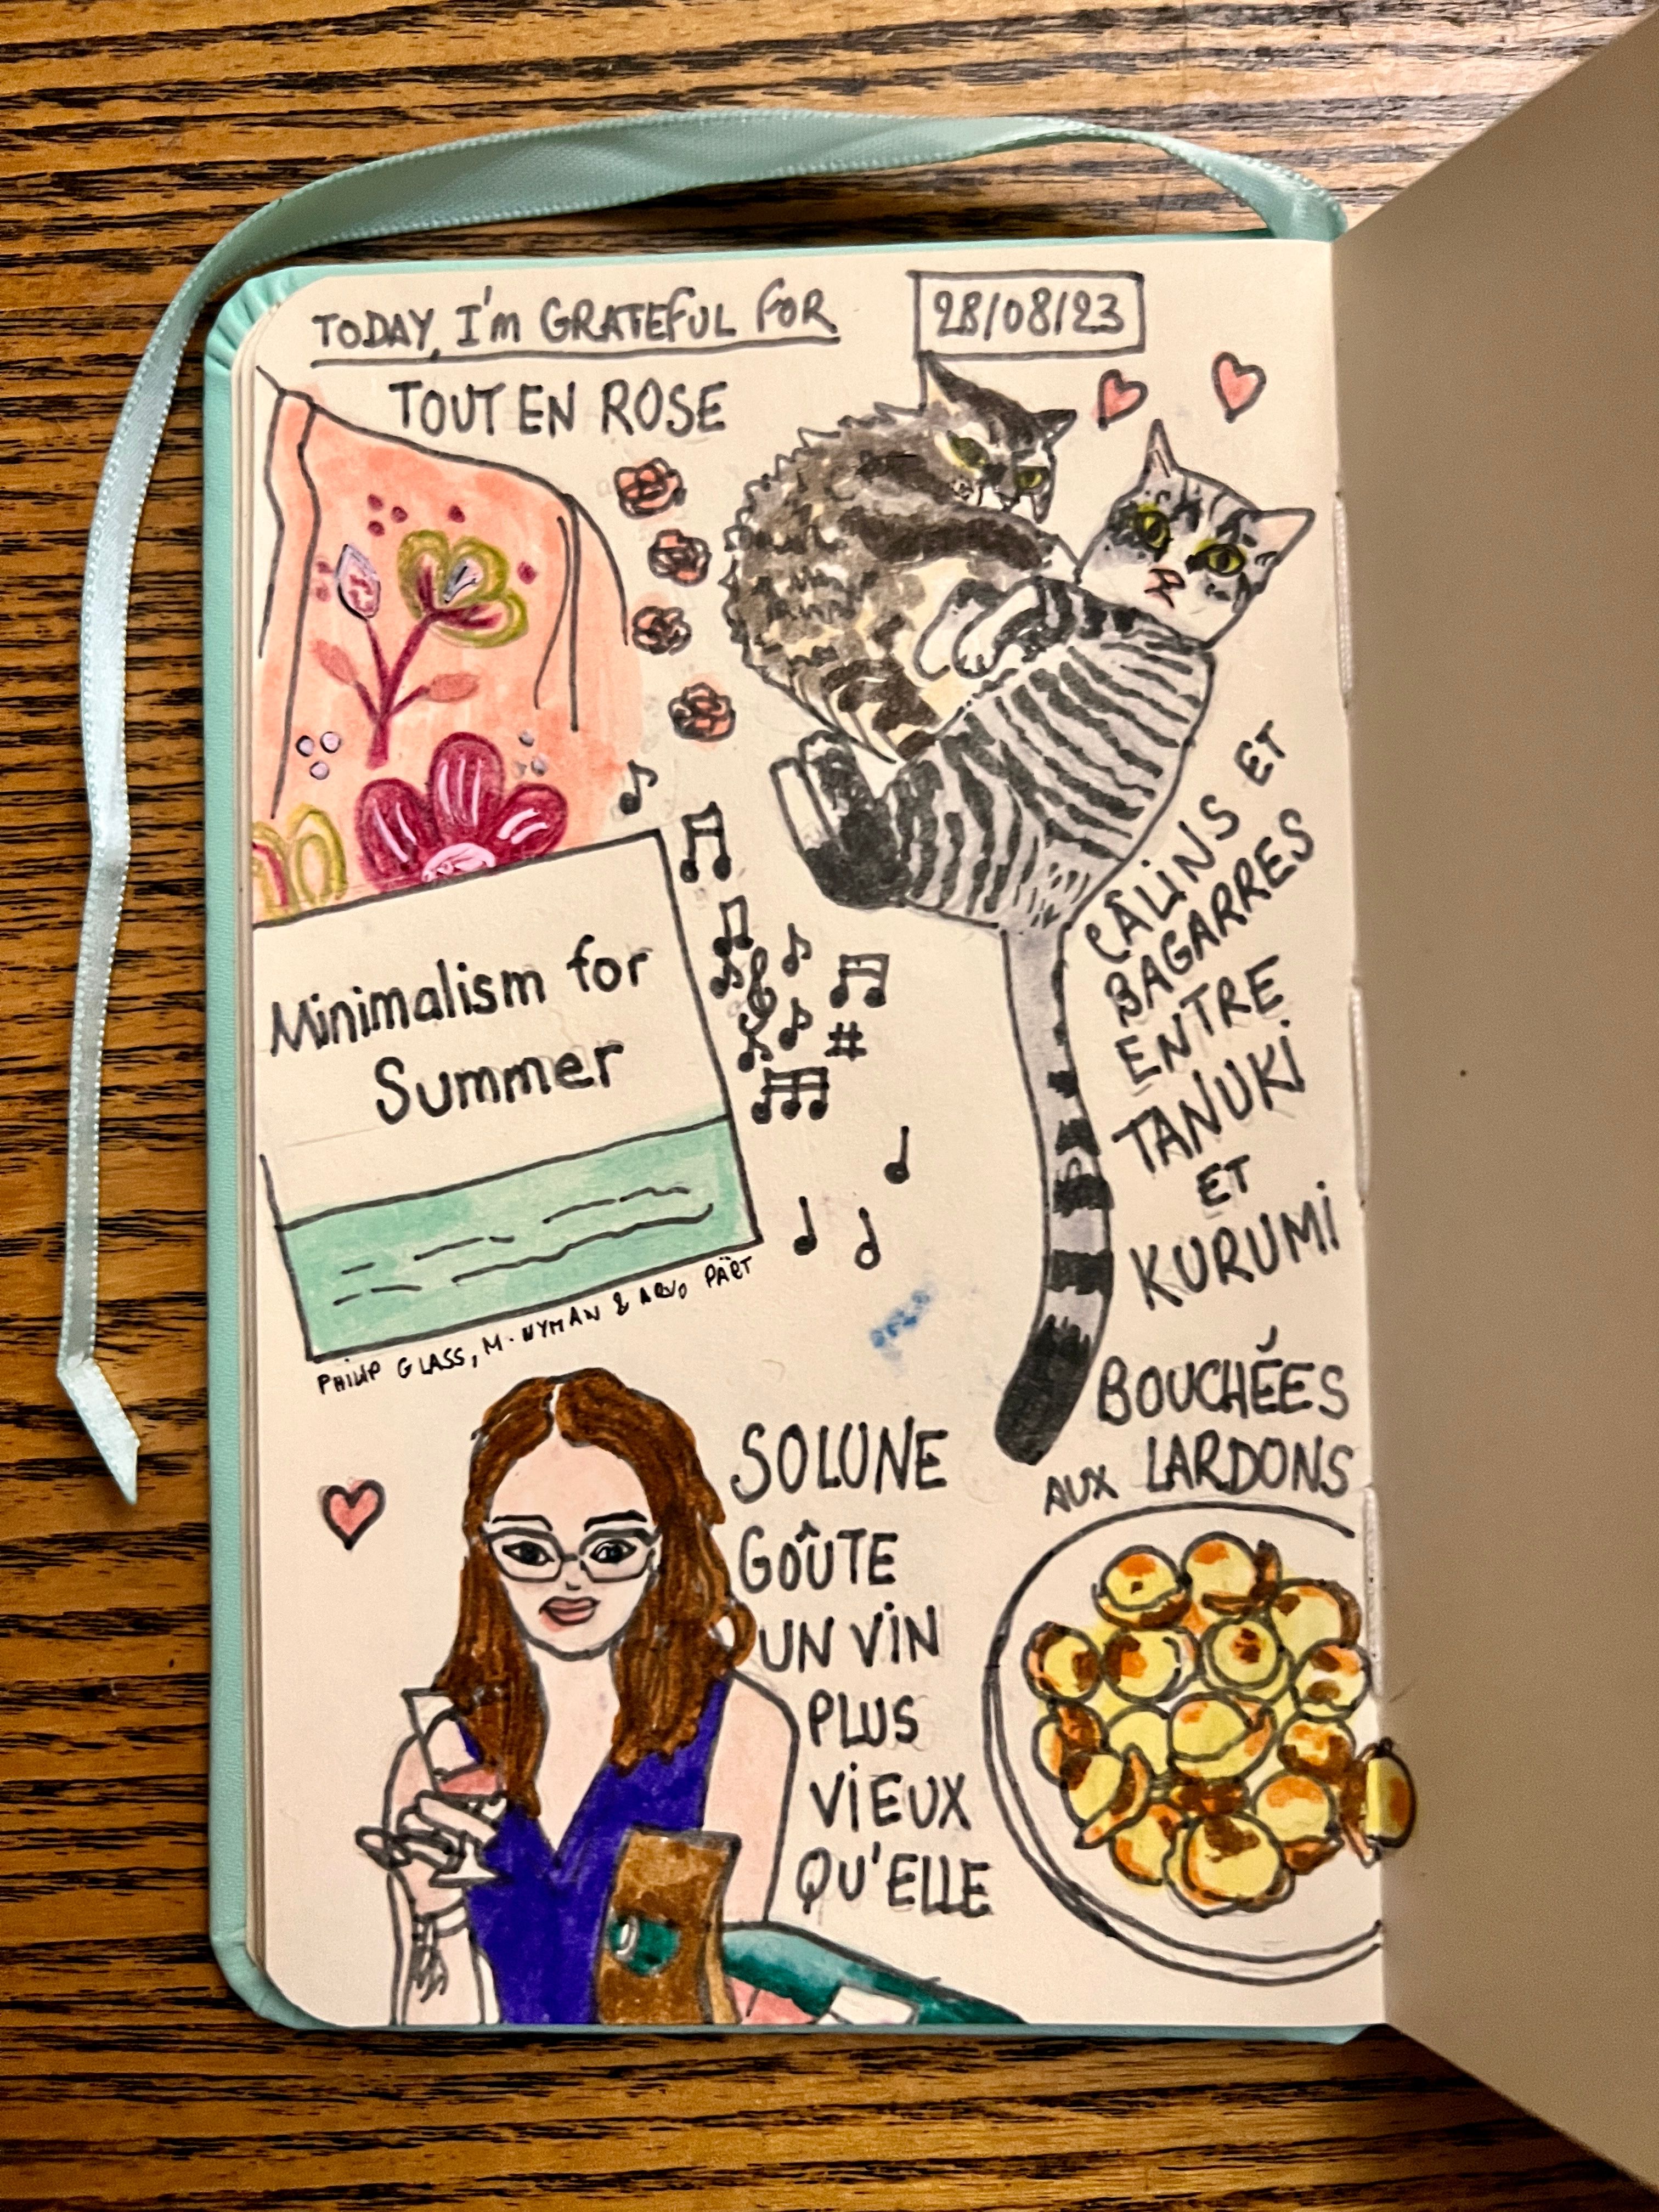 TODAY, I'm GRATEFUL FOR
28/08/23
TOUT EN ROSE
CÂLINS ET
BAGARRES
ENTRE
TANUKI
ET
KURUMI
Minimalism for
Summer
PHILIP GLASS, M. NYMAN & ARVO PÄRT
SOLUNE
GOÛTE
UN VIN
PLUS
VIEUX
QU'ELLE
BOUCHÉES
AUX LARDONS